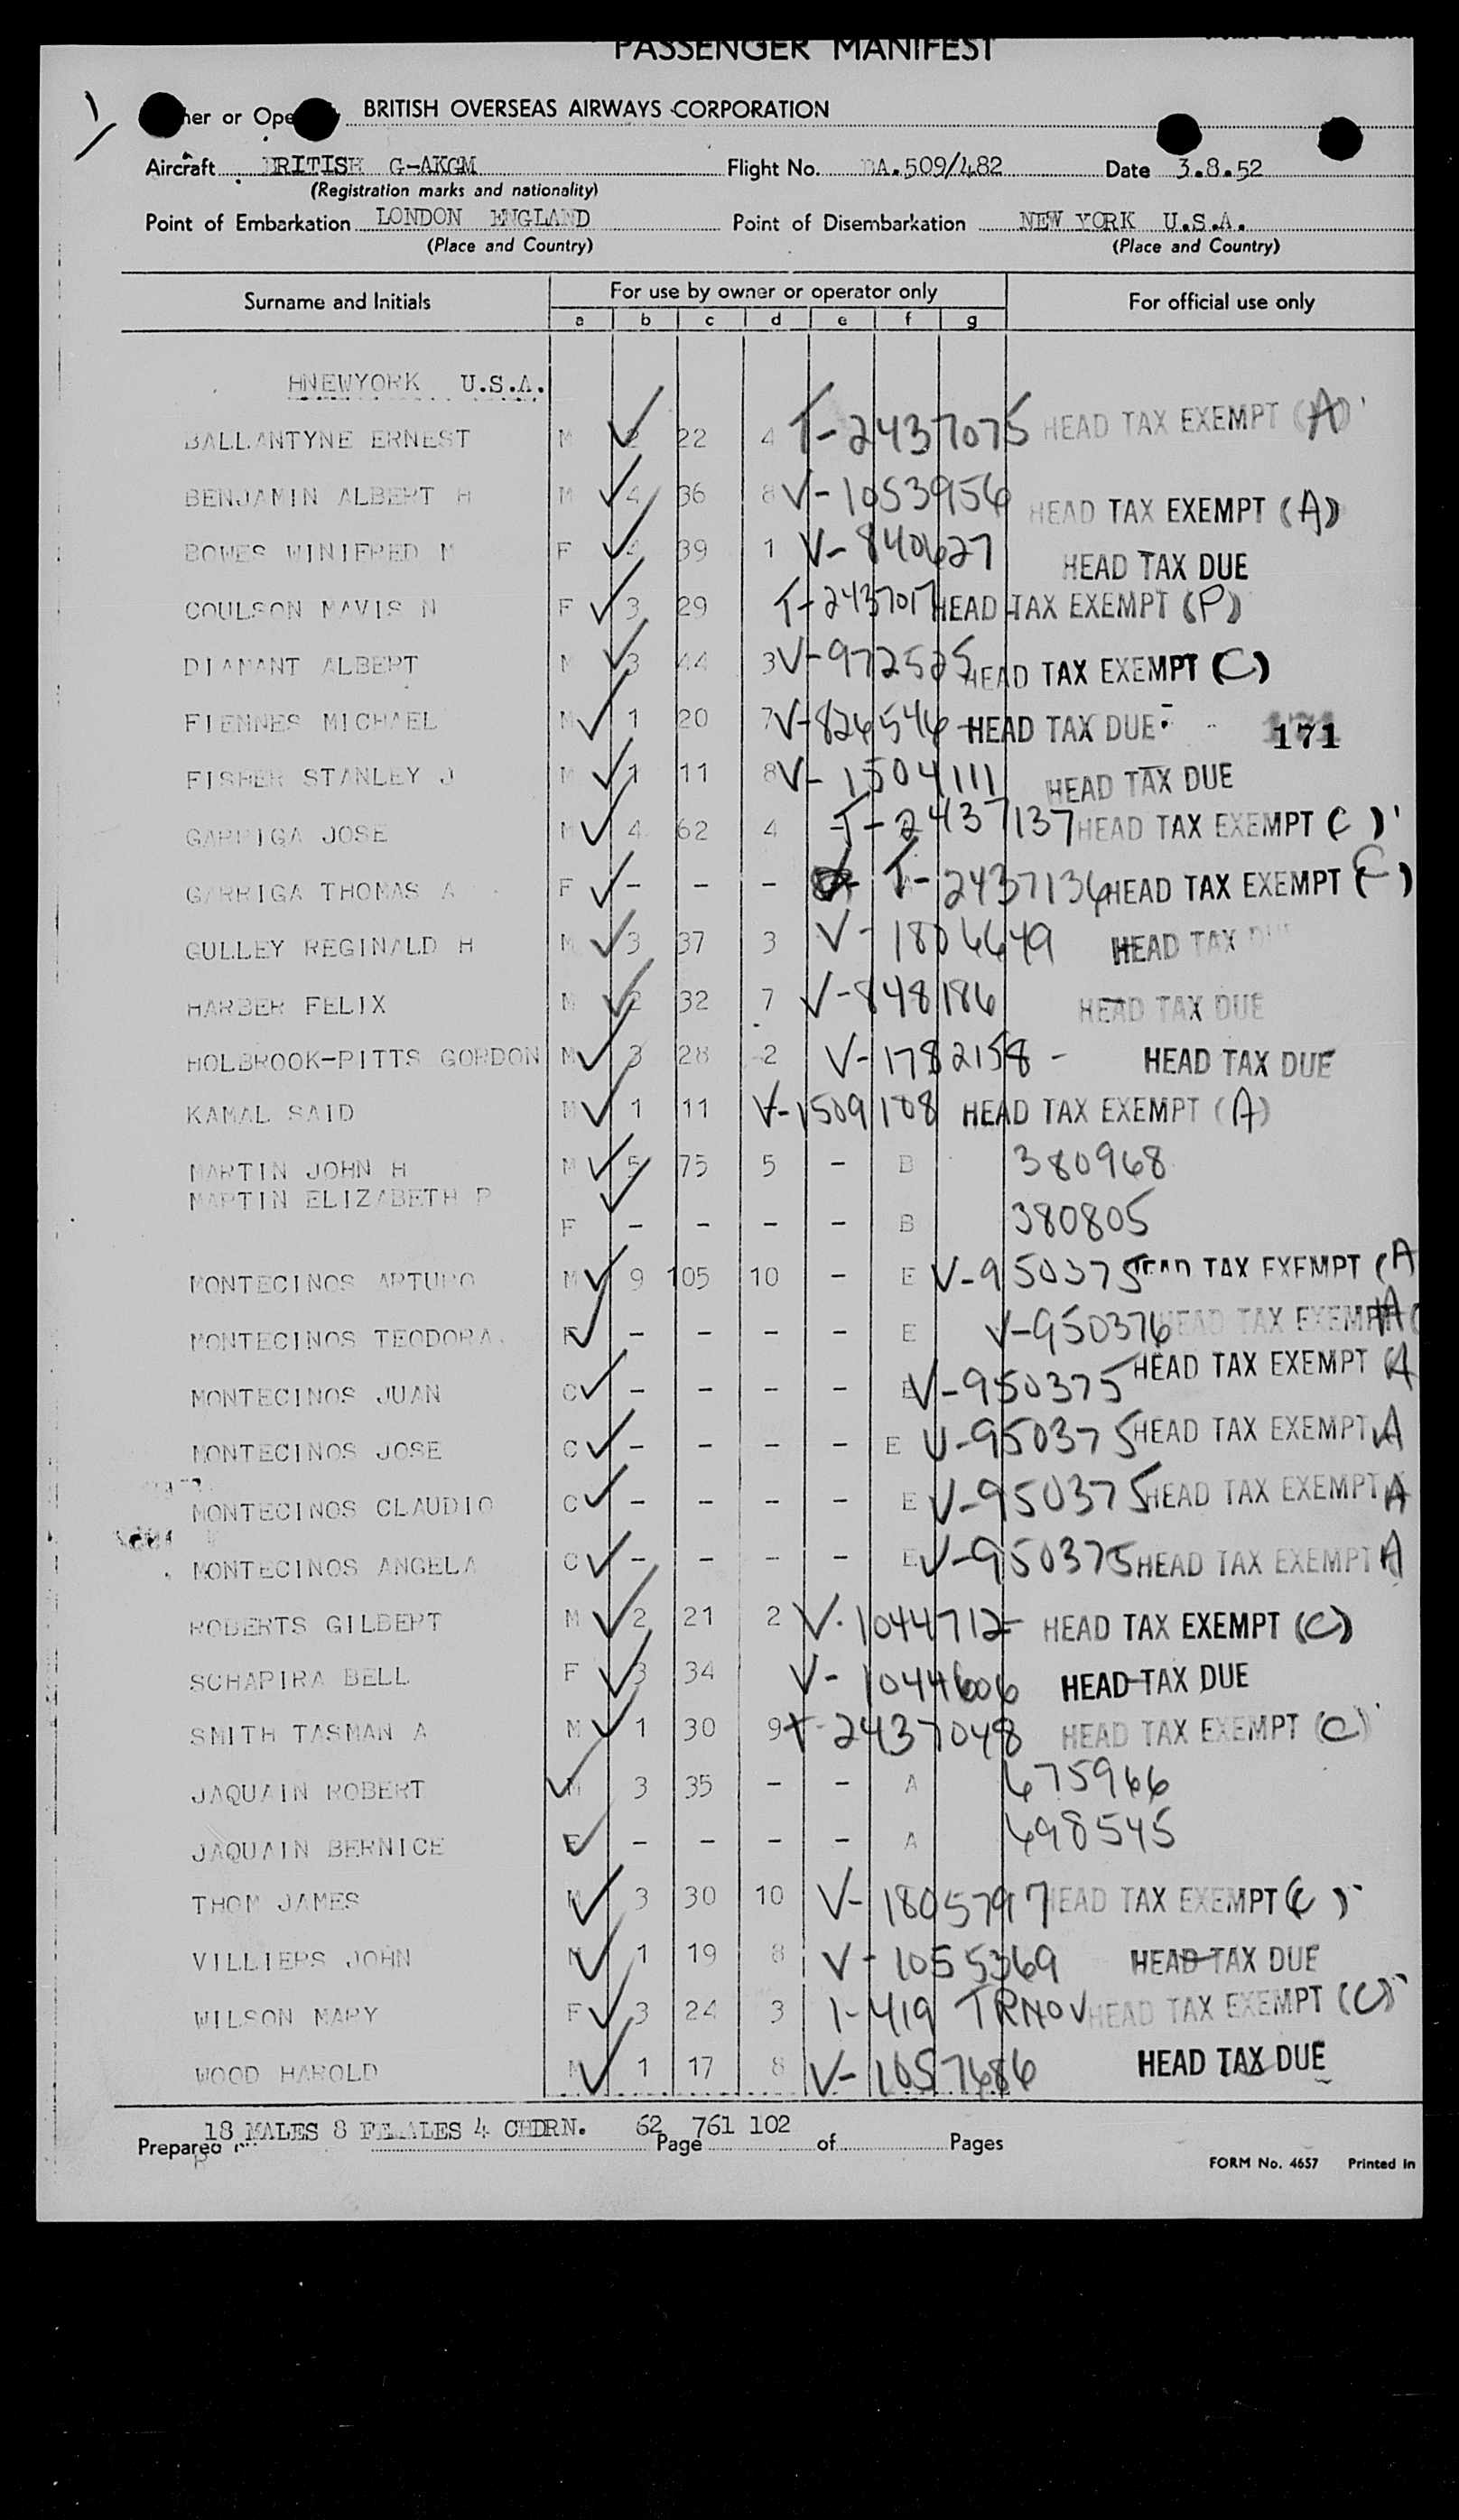 PASSENGER MANIFEST
BRITISH OVERSEAS AIRWAYS CORPORATION
Aircraft BRITISH G-AKGM Flight No. BA.509/482 Date 3.8.52
(Registration marks and nationality)
Point of Embarkation LONDON ENGLAND Point of Disembarkation NEW YORK U.S.A.
(Place and Country) (Place and Country)
Surname and Initials For use by owner or operator only For official use only
a b c d e f g
U.S.A.
BALLANTYNE ERNEST M 2 22 4 T-2437075 HEAD TAX EXEMPT (A)
BENJAMIN ALBERT H M 4 36 8 V-1053956 HEAD TAX EXEMPT (A)
BOWES WINIFRED M F 39 1 V-840627 HEAD TAX DUE
COULSON MAVIS N F 3 29 T-2437017 HEAD TAX EXEMPT (P)
DIAMANT ALBERT M 3 44 3 V-972525 HEAD TAX EXEMPT (C)
FIENNES MICHAEL M 1 20 7 V-826546 HEAD TAX DUE 171
FISHER STANLEY J M 1 11 8 V-1504111 HEAD TAX DUE
GARRIGA JOSE M 4 62 4 T-2437137 HEAD TAX EXEMPT (C)
GARRIGA THOMAS A F - - - T-2437136 HEAD TAX EXEMPT (C)
GULLEY REGINALD H M 3 37 3 V-1806649 HEAD TAX DUE
HARBER FELIX M 2 32 7 V-848186 HEAD TAX DUE
HOLBROOK-PITTS GORDON M 3 28 2 V-1782158 - HEAD TAX DUE
KAMAL SAID M 1 11 V-1509108 HEAD TAX EXEMPT (A)
MARTIN JOHN H M 5 75 5 - B 380968
MARTIN ELIZABETH P
F - - - - B 380805
MONTECINOS ARTURO M 9 105 10 - E V-950375 HEAD TAX EXEMPT (A
MONTECINOS TEODORA F - - - - E V-950376 HEAD TAX EXEMPT A
MONTECINOS JUAN C - - - - E V-950375 HEAD TAX EXEMPT (A
MONTECINOS JOSE C - - - - E V-950375 HEAD TAX EXEMPT A
MONTECINOS CLAUDIO C - - - - E V-950375 HEAD TAX EXEMPT A
MONTECINOS ANGELA C - - - - E V-950375 HEAD TAX EXEMPT A
ROBERTS GILBERT M 2 21 2 V-1044712 HEAD TAX EXEMPT (C)
SCHAPIRA BELL F 3 34 V-1044606 HEAD TAX DUE
SMITH TASMAN A M 1 30 9 T-2437048 HEAD TAX EXEMPT (C)
JAQUAIN ROBERT M 3 35 - - A 675966
JAQUAIN BERNICE F - - - - A 698545
THOM JAMES M 3 30 10 V-1805797 HEAD TAX EXEMPT (C)
VILLIERS JOHN M 1 19 8 V-1055369 HEAD TAX DUE
WILSON MARY F 3 24 3 HEAD TAX EXEMPT (C)
WOOD HAROLD M 1 17 8 V-1057686 HEAD TAX DUE
18 MALES 8 FEMALES 4 CHDRN. 62 761 102
Prepared Page of Pages
FORM No. 4657 Printed in